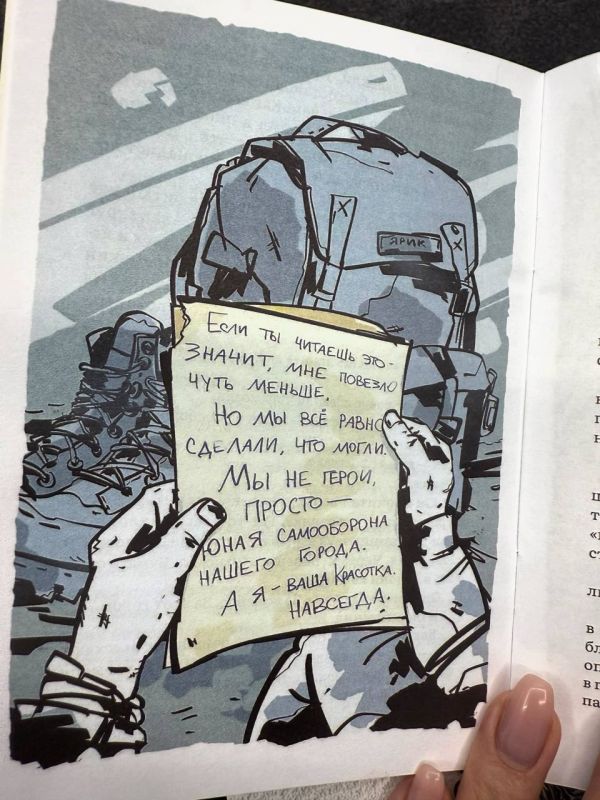 ЯРИК
Если ты читаешь это-
значит, мне повезло
чуть меньше.
Но мы всё равно
сделали, что могли.
Мы не герои,
просто —
юная самооборона
нашего города.
А я - ваша Красотка.
Навсегда.